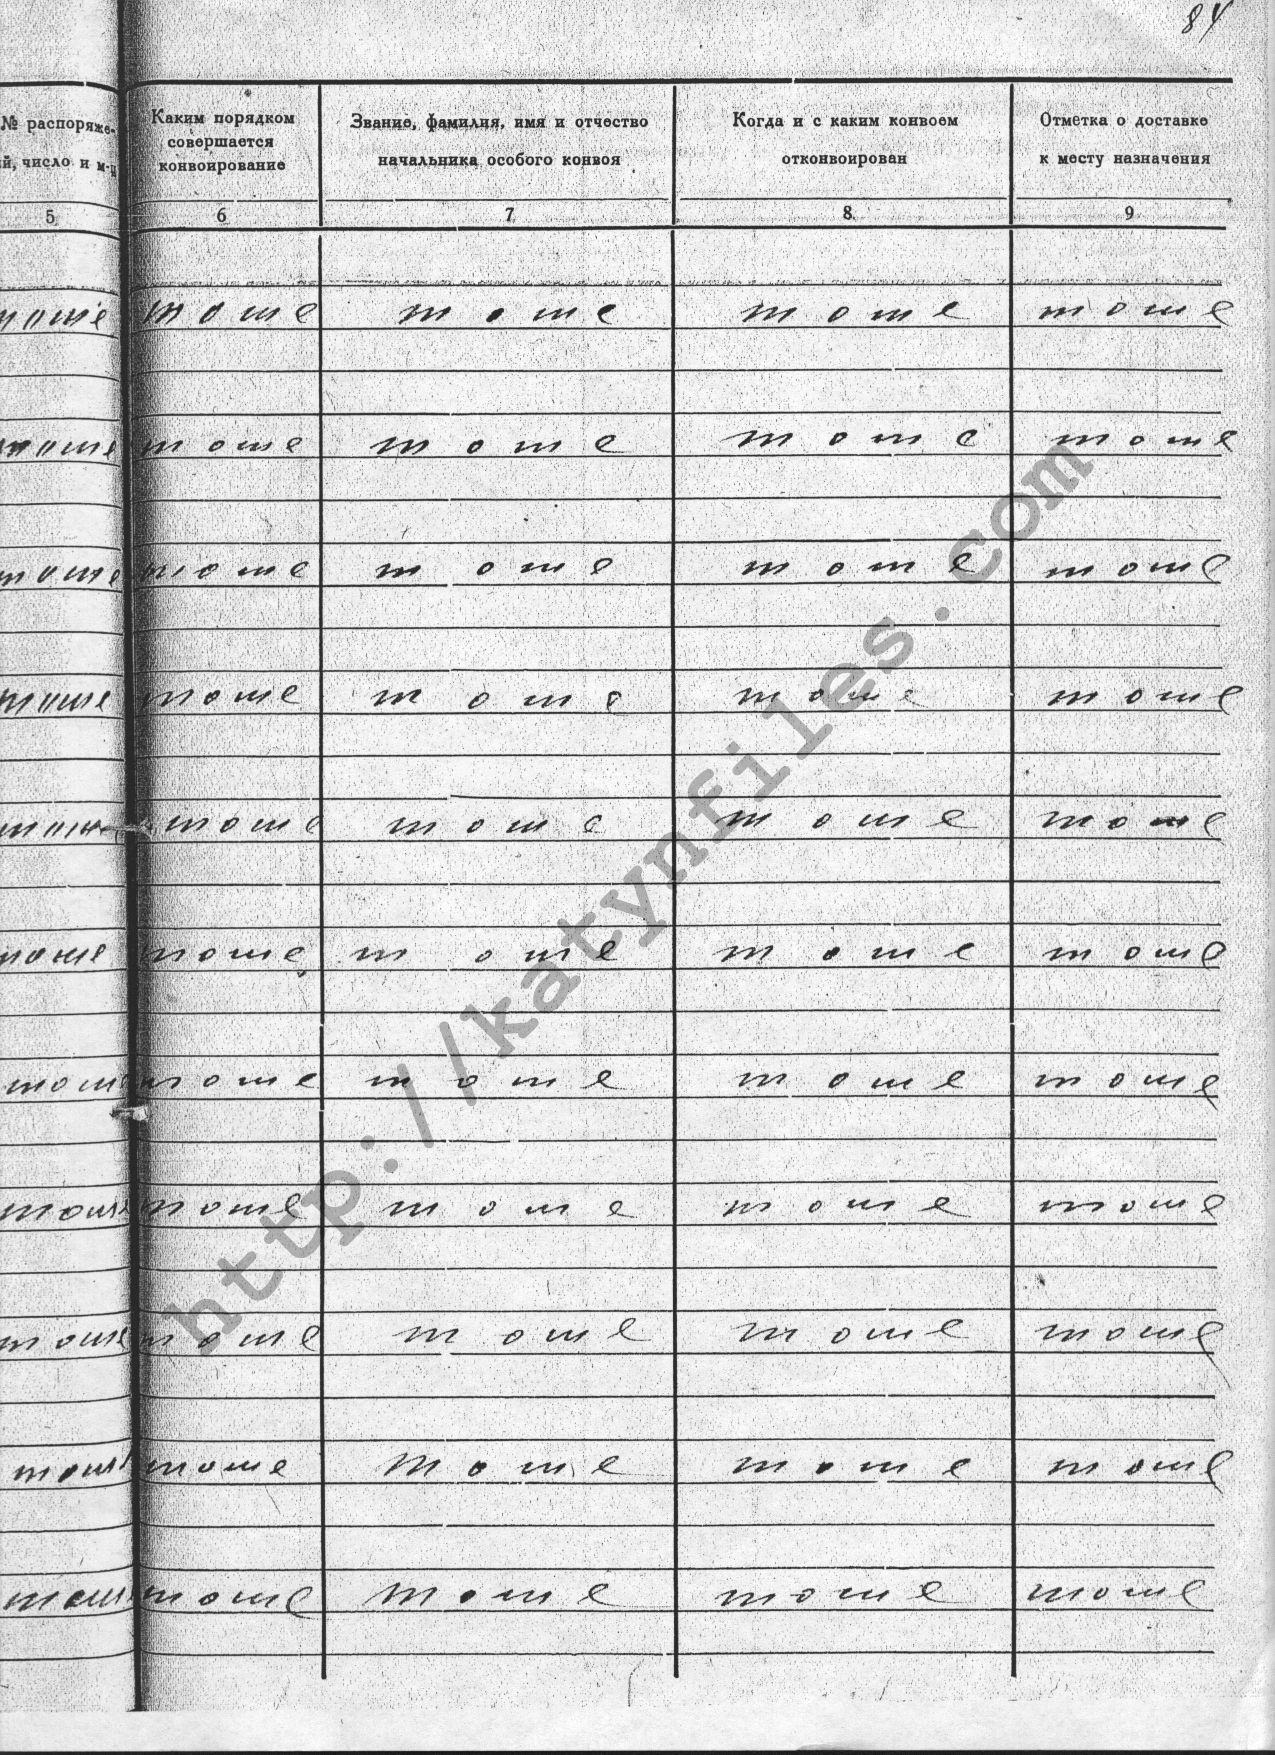 84
№ распоряже-
й, число и м-ц
Каким порядком
совершается
конвоирование
Звание, фамилия, имя и отчество
начальника особого конвоя
Когда и с каким конвоем
отконвоирован
Отметка о доставке
к месту назначения
5 6 7 8 9
тоже тоже тоже тоже тоже
тоже тоже тоже тоже тоже
тоже тоже тоже тоже тоже
тоже тоже тоже тоже тоже
тоже тоже тоже тоже тоже
тоже тоже тоже тоже тоже
тоже тоже тоже тоже тоже
тоже тоже тоже тоже тоже
тоже тоже тоже тоже тоже
тоже тоже тоже тоже тоже
тоже тоже тоже тоже тоже
http://katynfiles.com